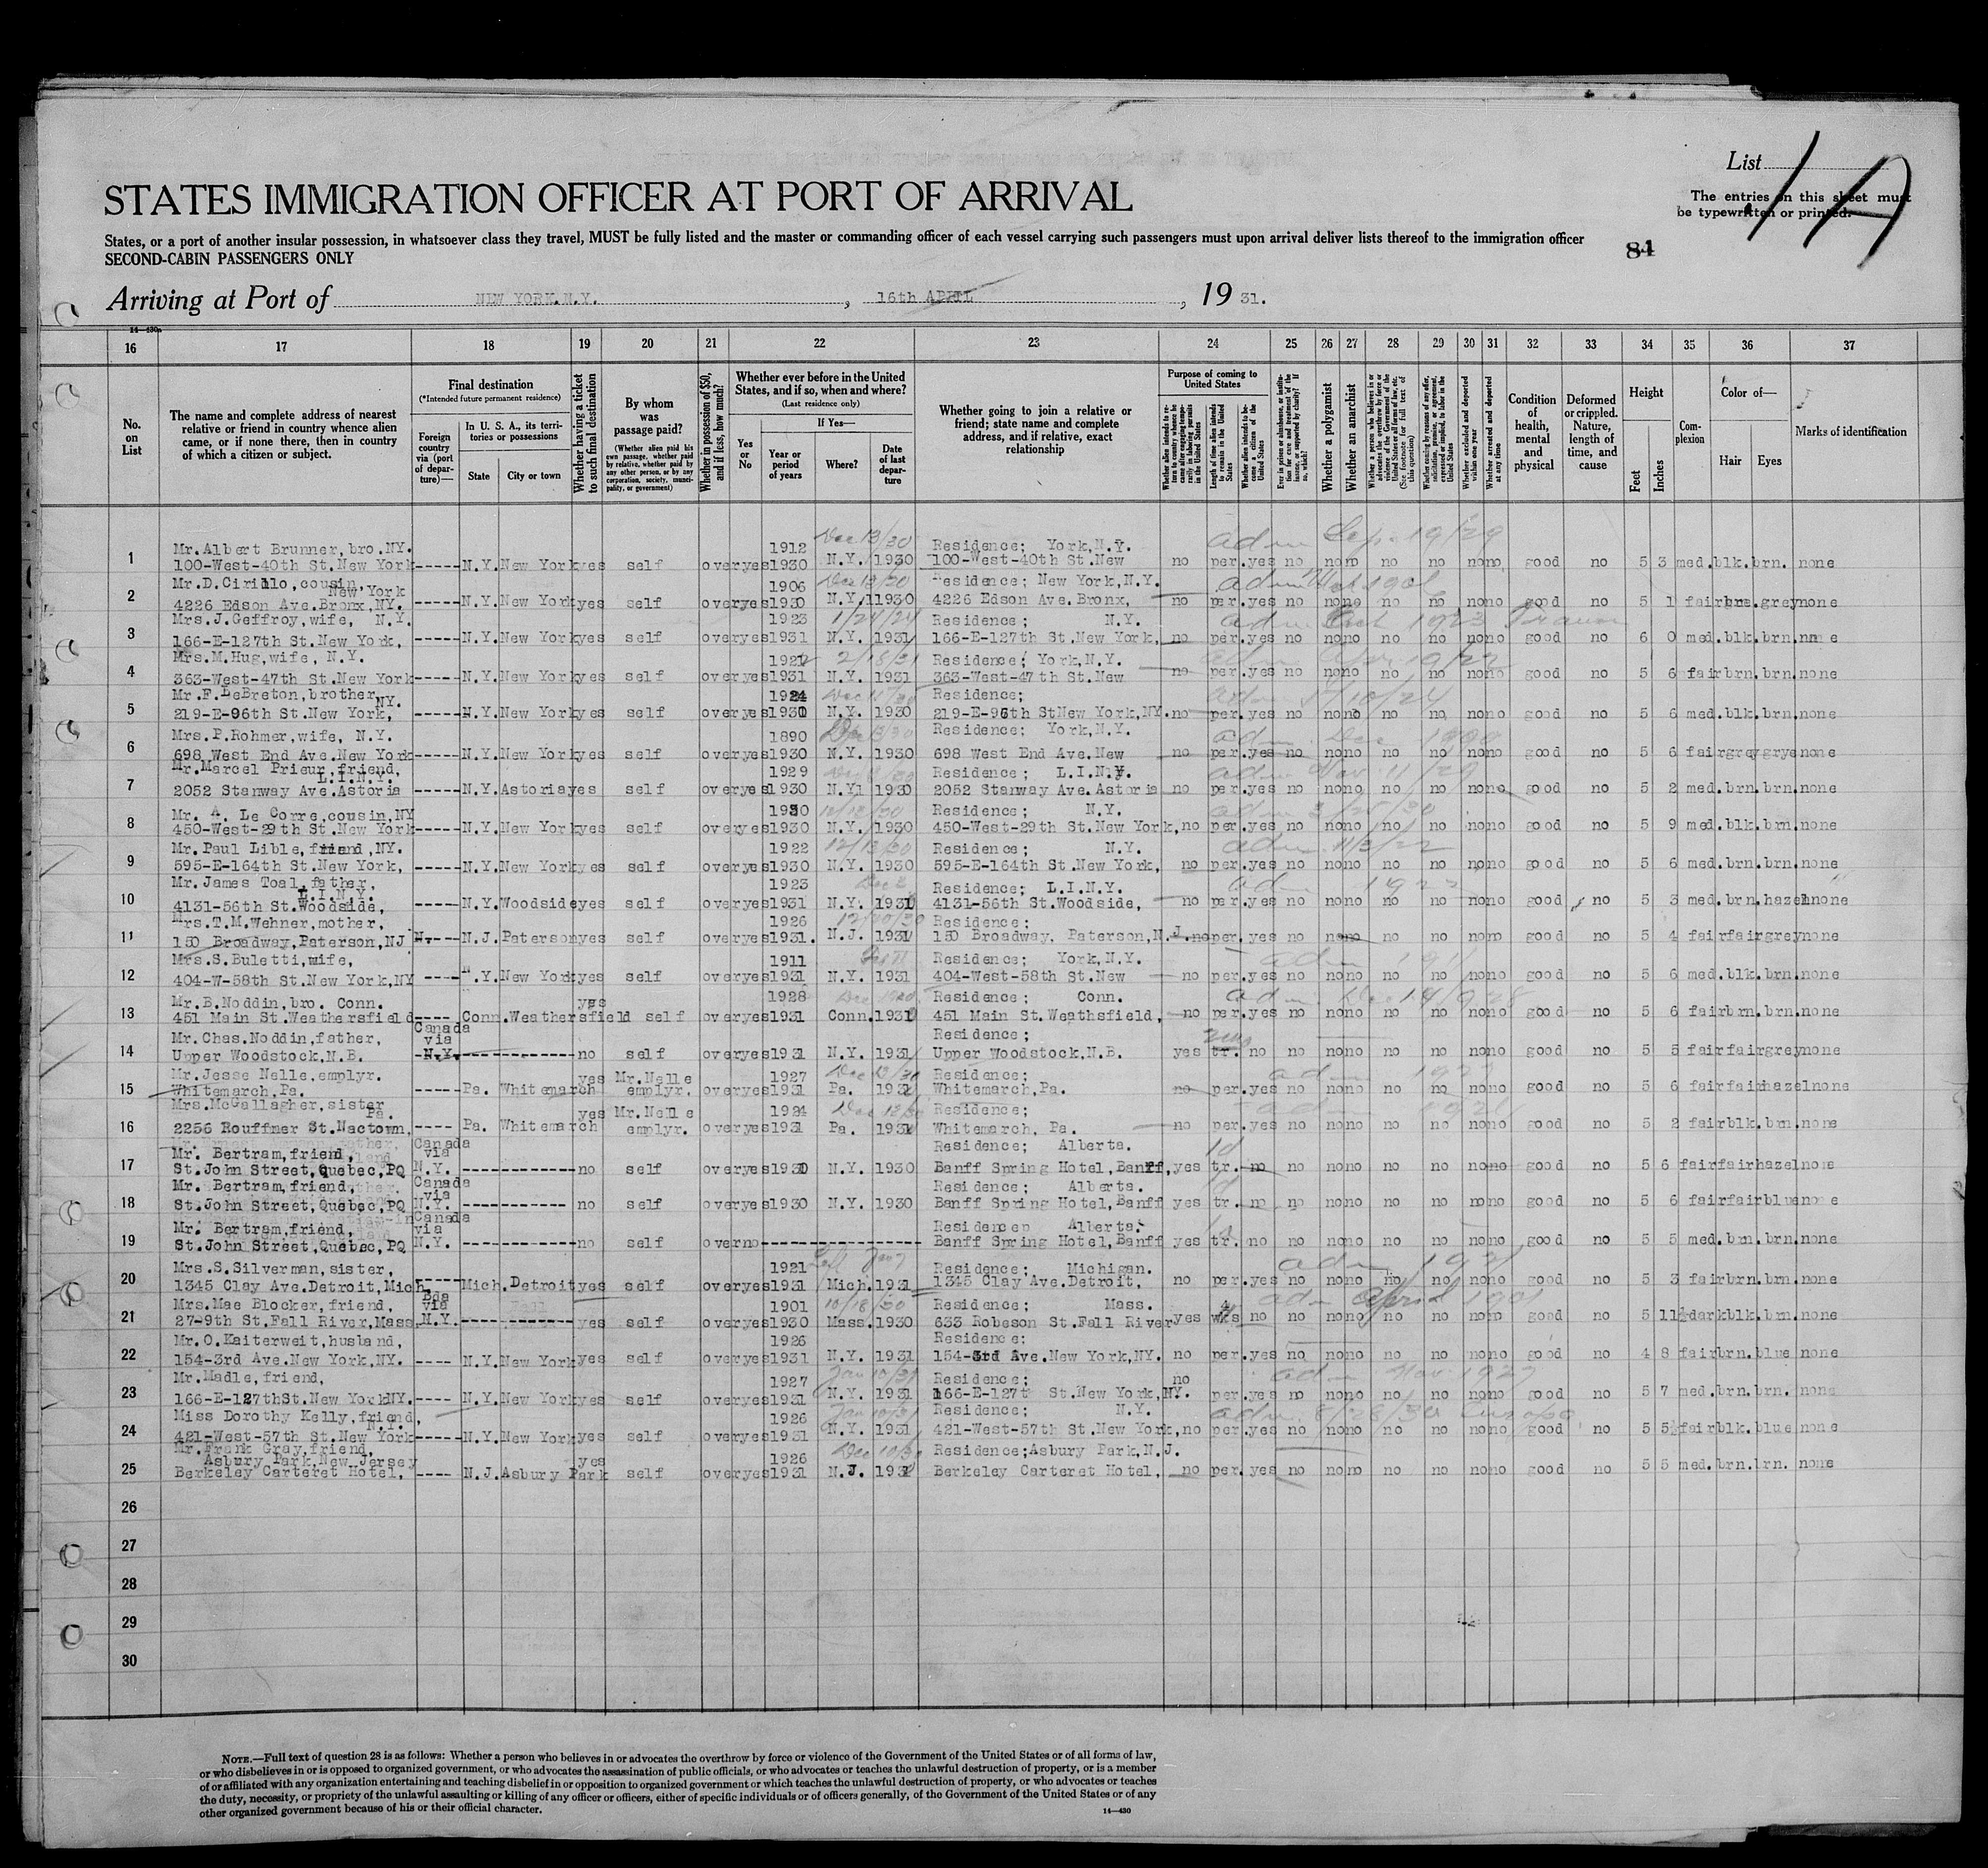 List 1A
The entries on this sheet must
be typewritten or printed.
STATES IMMIGRATION OFFICER AT PORT OF ARRIVAL
States, or a port of another insular possession, in whatsoever class they travel, MUST be fully listed and the master or commanding officer of each vessel carrying such passengers must upon arrival deliver lists thereof to the immigration officer
SECOND-CABIN PASSENGERS ONLY
81
Arriving at Port of NEW YORK.N.Y., 16th APRIL, 1931.
14—430
16 17 18 19 20 21 22 23 24 25 26 27 28 29 30 31 32 33 34 35 36 37
No. on List
The name and complete address of nearest relative or friend in country whence alien came, or if none there, then in country of which a citizen or subject.
Final destination
(*Intended future permanent residence)
Foreign country via (port of departure)—
In U. S. A., its territories or possessions
State
City or town
Whether having a ticket to such final destination
By whom was passage paid?
(Whether alien paid his own passage, whether paid by relative, whether paid by any other person, or by any corporation, society, municipality, or government)
Whether in possession of $50, and if less, how much?
Whether ever before in the United States, and if so, when and where?
(Last residence only)
Yes or No
If Yes—
Year or period of years
Where?
Date of last departure
Whether going to join a relative or friend; state name and complete address, and if relative, exact relationship
Purpose of coming to United States
Whether alien intends to return to country whence he came after engaging temporarily in laboring pursuits in the United States
Length of time alien intends to remain in the United States
Whether alien intends to become a citizen of the United States
Ever in prison or almshouse, or institution for care and treatment of the insane, or supported by charity? If so, which?
Whether a polygamist
Whether an anarchist
Whether a person who believes in or advocates the overthrow by force or violence of the Government of the United States or all forms of law, etc. (See footnote for full text of this question)
Whether coming by reason of any offer, solicitation, promise, or agreement, expressed or implied, to labor in the United States
Whether excluded and deported within one year
Whether arrested and deported at any time
Condition of health, mental and physical
Deformed or crippled. Nature, length of time, and cause
Height
Feet
Inches
Complexion
Color of—
Hair
Eyes
Marks of identification
Mr.Albert Brunner,bro.NY. 1912 Dec 13/30 Residence; York,N.Y. adm Sep 19/29
1 100-West-40th St.New York ----- N.Y. New York yes self over yes 1930 N.Y. 1930 100-West-40th St.New no per. yes no no no no no no no good no 5 3 med. blk. brn. none
Mr.D.Cirillo,cousin, New York 1906 Dec 13/30 Residence; New York,N.Y. adm
2 4226 Edson Ave.Bronx,NY. ----- N.Y. New York yes self over yes 1930 N.Y. 1930 4226 Edson Ave.Bronx, no per. yes no no no no no no no good no 5 1 fair grey none
Mrs.J.Geffroy,wife, N.Y. 1923 Residence; N.Y. adm Oct 1923
3 166-E-127th St.New York, ----- N.Y. New York yes self over yes 1931 N.Y. 1931 166-E-127th St.New York, no per. yes no no no no no no no good no 6 0 med. blk. brn. none
Mrs.M.Hug,wife, N.Y. 1922 2/18/31 Residence; York,N.Y.
4 363-West-47th St.New York ----- N.Y. New York yes self over yes 1931 N.Y. 1931 363-West-47th St.New no per. yes no no no no no no no good no 5 6 fair brn. brn. none
Mr.F.LeBreton,brother, NY. 1924 Residence;
5 219-E-96th St.New York, ----- N.Y. New York yes self over yes 1930 N.Y. 1930 219-E-96th StNew York,NY. no per. yes no no no no no no no good no 5 6 med. blk. brn. none
Mrs.P.Rohmer,wife, N.Y. 1890 Residence; York,N.Y.
6 698 West End Ave.New York ----- N.Y. New York yes self over yes 1930 N.Y. 1930 698 West End Ave.New no per. yes no no no no no no no good no 5 6 fair grey grye none
Mr.Marcel Prieur,friend, L.I.N.Y. 1929 Residence; L.I.N.Y. adm Nov 11/29
7 2052 Stanway Ave.Astoria ----- N.Y. Astoria yes self over yes 1930 N.Y. 1930 2052 Stanway Ave.Astoria no per. yes no no no no no no no good no 5 2 med. brn. brn. none
Mr. A. Le Corre,cousin,NY 1930 12/13/30 Residence; N.Y.
8 450-West-29th St.New York ----- N.Y. New York yes self over yes 1930 N.Y. 1930 450-West-29th St.New York, no per. yes no no no no no no no good no 5 9 med. blk. brn. none
Mr.Paul Lible,friend,NY. 1922 12/13/30 Residence; N.Y. adm 11/3/22
9 595-E-164th St.New York, ----- N.Y. New York yes self over yes 1930 N.Y. 1930 595-E-164th St.New York, no per. yes no no no no no no no good no 5 6 med. brn. brn. none
Mr.James Toal,father, L.I.N.Y. 1923 Residence; L.I.N.Y. adm
10 4131-56th St.Woodside, ----- N.Y. Woodside yes self over yes 1931 N.Y. 1930 4131-56th St.Woodside, no per. yes no no no no no no no good no 5 3 med. brn. hazel none
Mrs.T.M.Wehner,mother, 1926 12/20/30 Residence;
11 150 Broadway,Paterson,NJ ---- N.J. Paterson yes self over yes 1931. N.J. 1931 150 Broadway, Paterson,N.J. no per. yes no no no no no no no good no 5 4 fair fair grey none
Mrs.S.Buletti,wife, 1911 Residence; York,N.Y. adm 1911
12 404-W-58th St.New York,NY ---- N.Y. New York yes self over yes 1931 N.Y. 1931 404-West-58th St.New no per. yes no no no no no no no good no 5 6 med. blk. brn. none
Mr.B.Noddin,bro. Conn. yes 1928 Residence; Conn. adm Dec 1928
13 451 Main St.Weathersfield ---- Conn. Weathersfield self over yes 1931 Conn. 1930 451 Main St.Weathsfield, no per. yes no no no no no no no good no 5 6 fair brn. brn. none
Mr.Chas.Noddin,father, Canada via Residence;
14 Upper Woodstock,N.B. N.Y. ----------- no self over yes 1931 N.Y. 1931 Upper Woodstock,N.B. yes tr. no no no no no no no no good no 5 5 fair fair grey none
Mr.Jesse Nelle,emplyr. yes Mr.Nelle 1927 Dec 13/30 Residence; adm
15 Whitemarch,Pa. ----- Pa. Whitemarch emplyr. over yes 1931 Pa. 1931 Whitemarch,Pa. no per. yes no no no no no no no good no 5 6 fair fair hazel none
Mrs.McGallagher,sister Pa. yes Mr.Nelle 1924 Dec 12/30 Residence;
16 2256 Rouffner St.Nactown, ---- Pa. Whitemarch emplyr. over yes 1931 Pa. 1931 Whitemarch, Pa. no per. yes no no no no no no no good no 5 2 fair blk. brn. none
Mr. Bertram,friend, Canada via Residence; Alberta. 1d
17 St.John Street,Quebec,PQ N.Y. ----------- no self over yes 1930 N.Y. 1930 Banff Spring Hotel,Banff, yes tr. no no no no no no no no good no 5 6 fair fair hazel none
Mr. Bertram,friend, Canada via Residence; Alberta. 1d
18 St.John Street,Quebec,PQ N.Y. ----------- no self over yes 1930 N.Y. 1930 Banff Spring Hotel,Banff yes tr. no no no no no no no no good no 5 6 fair fair blue none
Mr. Bertram,friend, Canada via Residencen Alberta.
19 St.John Street,Quebec,PQ N.Y. ----------- no self over no ----------- Banff Spring Hotel,Banff yes tr. no no no no no no no no good no 5 5 med. brn. brn. none
Mrs.S.Silverman,sister, 1921 Residence; Michigan. adm 1921
20 1345 Clay Ave.Detroit,Mich. ---- Mich. Detroit yes self over yes 1931 Mich. 1931 1345 Clay Ave.Detroit, no per. yes no no no no no no no good no 5 3 fair brn. brn. none
Mrs.Mae Blocker,friend, Bda via 1901 10/18/30 Residence; Mass. adm April 1901
21 27-9th St.Fall River,Mass. N.Y. ----------- yes self over yes 1930 Mass. 1930 633 Robeson St.Fall River yes wks no no no no no no no no good no 5 11½ dark blk. brn. none
Mr.O.Kaiterweit,husband, 1926 Residence;
22 154-3rd Ave.New York,NY. ---- N.Y. New York yes self over yes 1931 N.Y. 1931 154-3rd Ave.New York,NY. no per. yes no no no no no no no good no 4 8 fair brn. blue none
Mr.Madle,friend, 1927 Residence; no adm Nov 1927
23 166-E-127thSt.New YorkNY. ---- N.Y. New York yes self over yes 1931 N.Y. 1931 166-E-127t St.New York,NY. per. yes no no no no no no no good no 5 7 med. brn. brn. none
Miss Dorothy Kelly,friend, N.Y. 1926 Residence; N.Y. adm 8/28/30
24 421-West-57th St.New York ----- N.Y. New York yes self over yes 1931 N.Y. 1931 421-West-57th St.New York, no per. yes no no no no no no no good no 5 5½ fair blk. blue none
Mr.Frank Gray,friend, Asbury Park,New Jersey yes 1926 Dec 10/30 Residence;Asbury Park,N.J.
25 Berkeley Carteret Hotel, ---- N.J. Asbury Park self over yes 1931 N.J. 1931 Berkeley Carteret Hotel, no per. yes no no no no no no no good no 5 5 med. brn. brn. none
26
27
28
29
30
NOTE.—Full text of question 28 is as follows: Whether a person who believes in or advocates the overthrow by force or violence of the Government of the United States or of all forms of law,
or who disbelieves in or is opposed to organized government, or who advocates the assassination of public officials, or who advocates or teaches the unlawful destruction of property, or is a member
of or affiliated with any organization entertaining and teaching disbelief in or opposition to organized government or which teaches the unlawful destruction of property, or who advocates or teaches
the duty, necessity, or propriety of the unlawful assaulting or killing of any officer or officers, either of specific individuals or of officers generally, of the Government of the United States or of any
other organized government because of his or their official character.
14—430